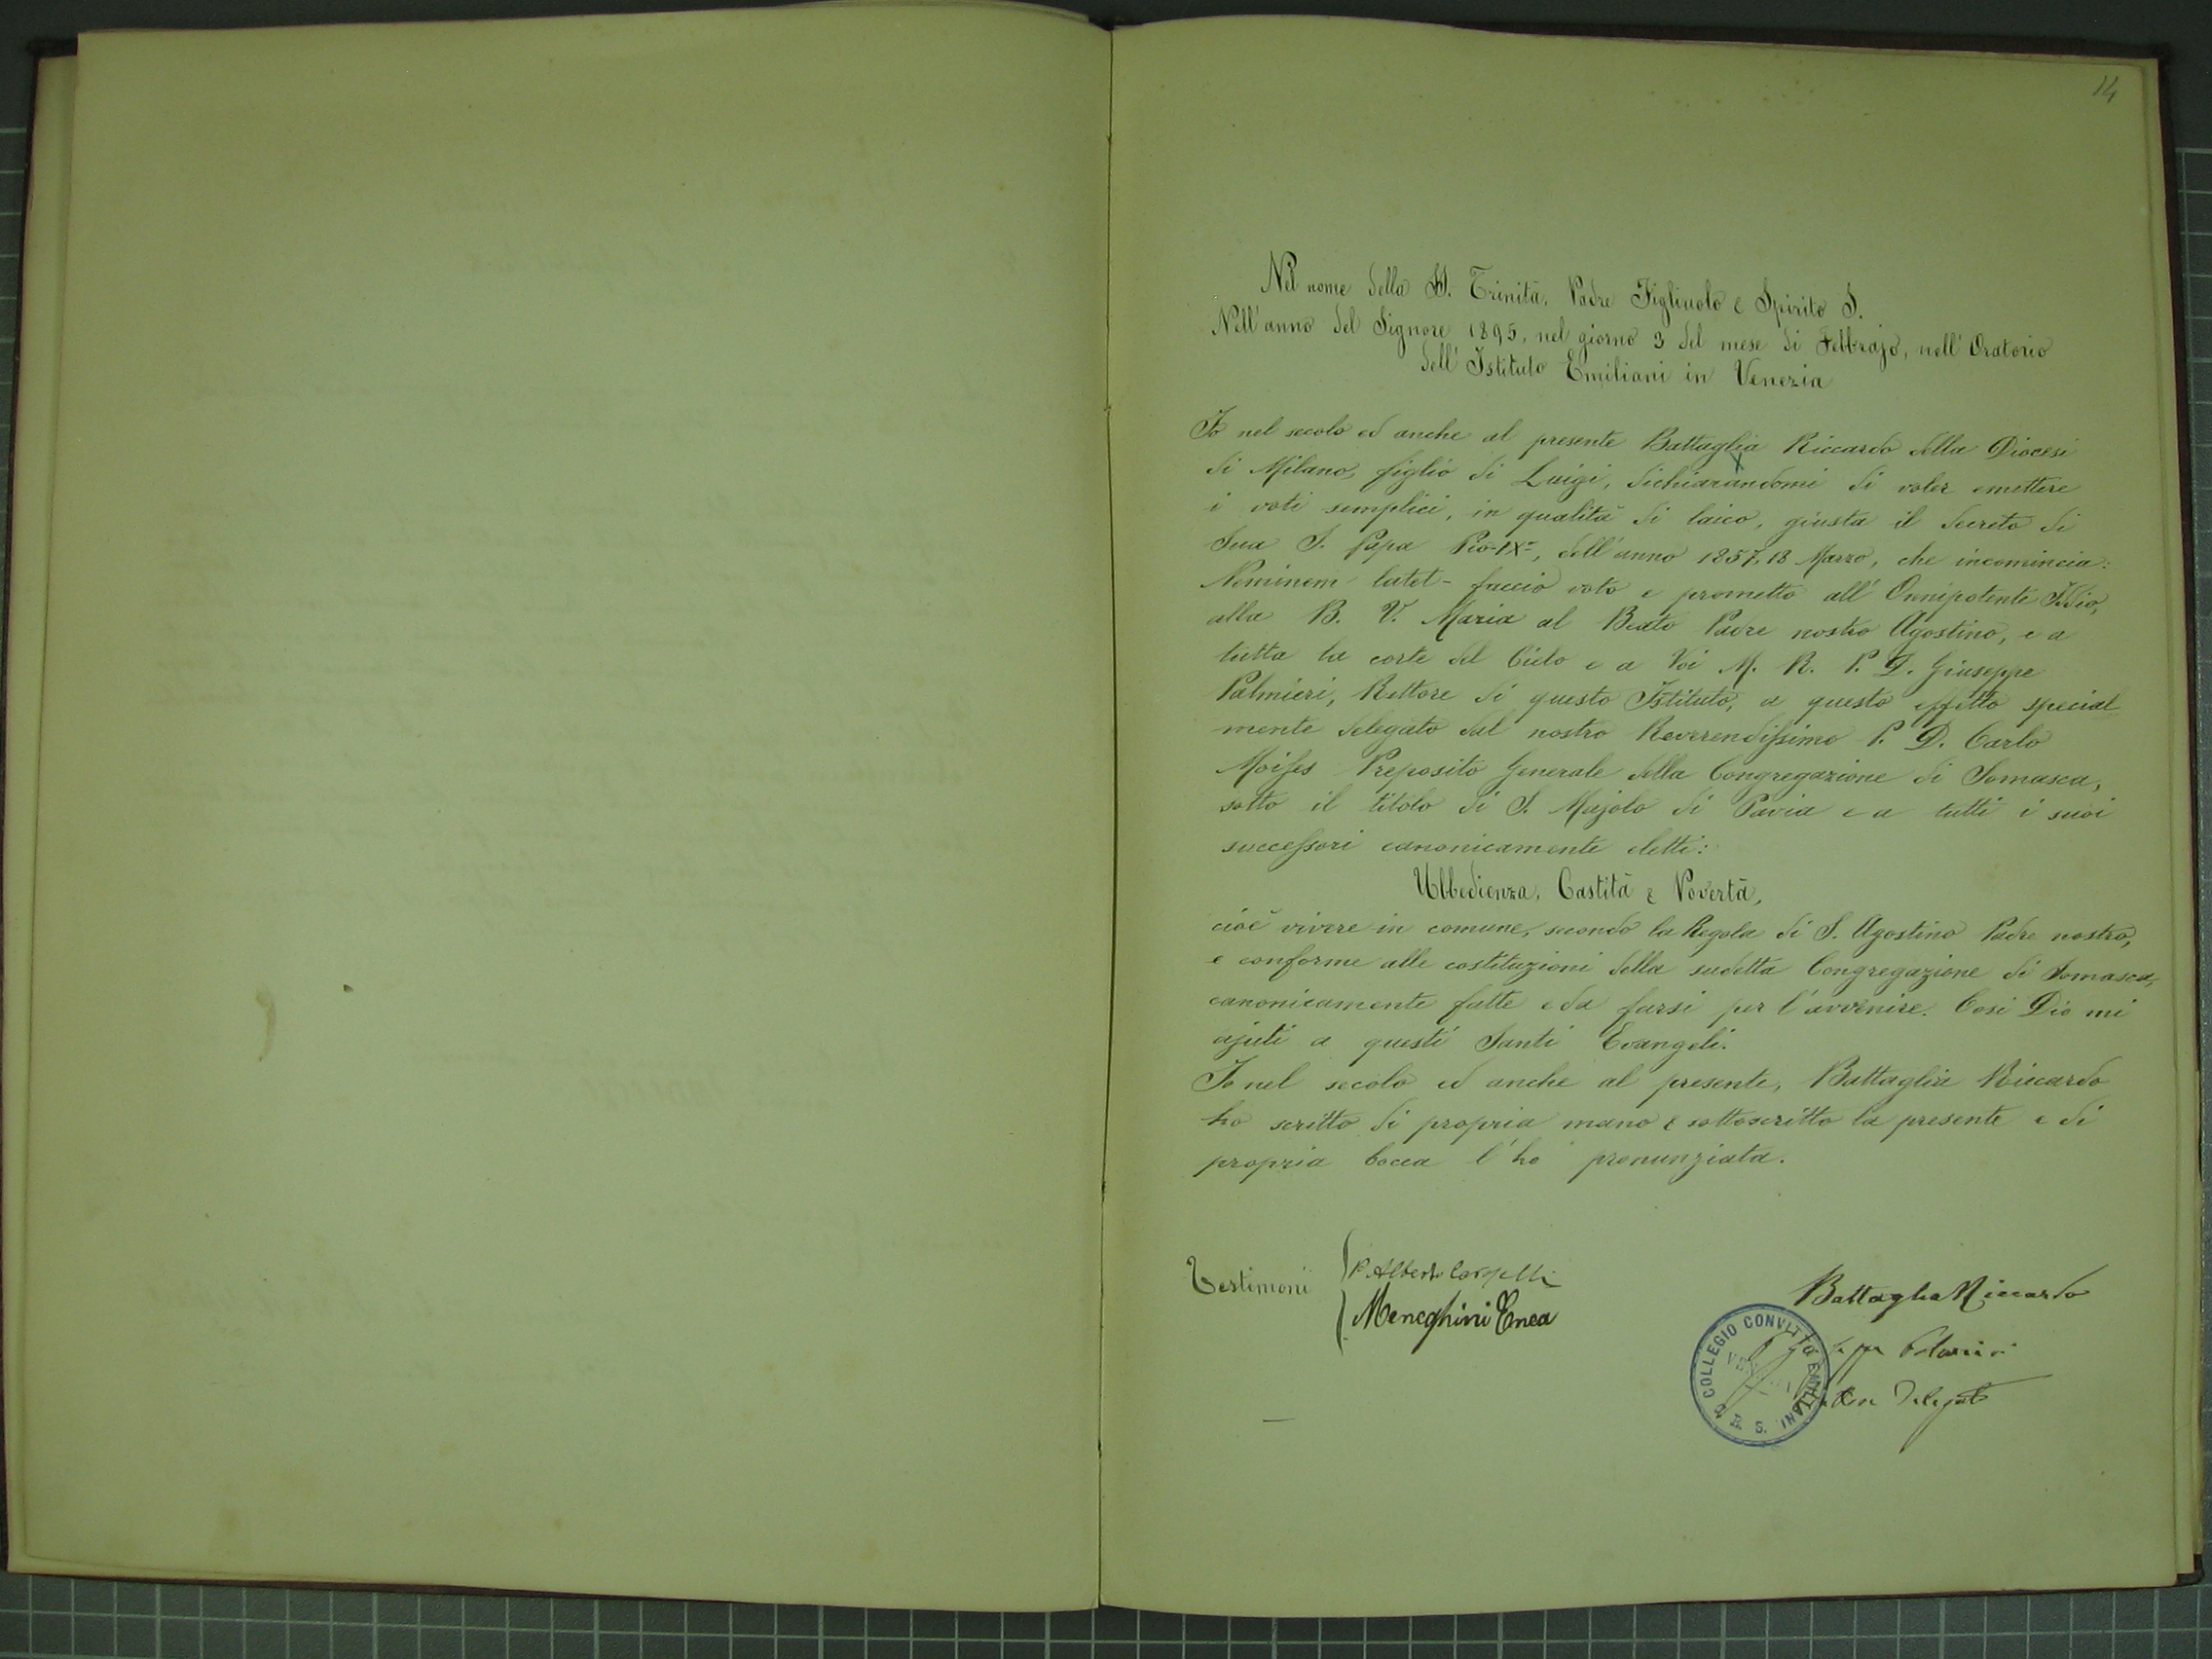 14
Nel nome della SS. Trinità, Padre Figliuolo e Spirito S.
Nell'anno del Signore 1895, nel giorno 3 del mese di Febbrajo, nell'Oratorio
dell'Istituto Emiliani in Venezia
Io nel secolo ed anche al presente Battaglia Riccardo della Diocesi
di Milano, figlio di Luigi, dichiarandomi di voler emettere
i voti semplici, in qualità di laico, giusta il decreto di
Sua S. Papa Pio IXº, dell'anno 1857, 18 Marzo, che incomincia:
Neminem latet - faccio voto e prometto all'Onnipotente Iddio,
alla B. V. Maria al Beato Padre nostro Agostino, e a
tutta la corte del Cielo e a Voi M. R. P. D. Giuseppe
Palmieri, Rettore di questo Istituto, a questo effetto special
mente delegato dal nostro Reverendissimo P. D. Carlo
Moisses Preposito Generale della Congregazione di Somasca,
sotto il titolo di S. Majolo di Pavia e a tutti i suoi
successori canonicamente eletti:
Ubbedienza, Castità e Povertà,
cioè vivere in comune, secondo la Regola di S. Agostino Padre nostro,
e conforme alle costituzioni della sudetta Congregazione di Somasca,
canonicamente fatte e da farsi per l'avvenire. Così Dio mi
ajuti a questi Santi Evangeli.
Io nel secolo ed anche al presente, Battaglia Riccardo
ho scritto di propria mano e sottoscritto la presente e di
propria bocca l'ho pronunziata.
Testimonii
P. Alberto
Meneghini Enea
Battaglia Riccardo
Delegato
COLLEGIO CONVITTO EMILIANI
VENEZIA